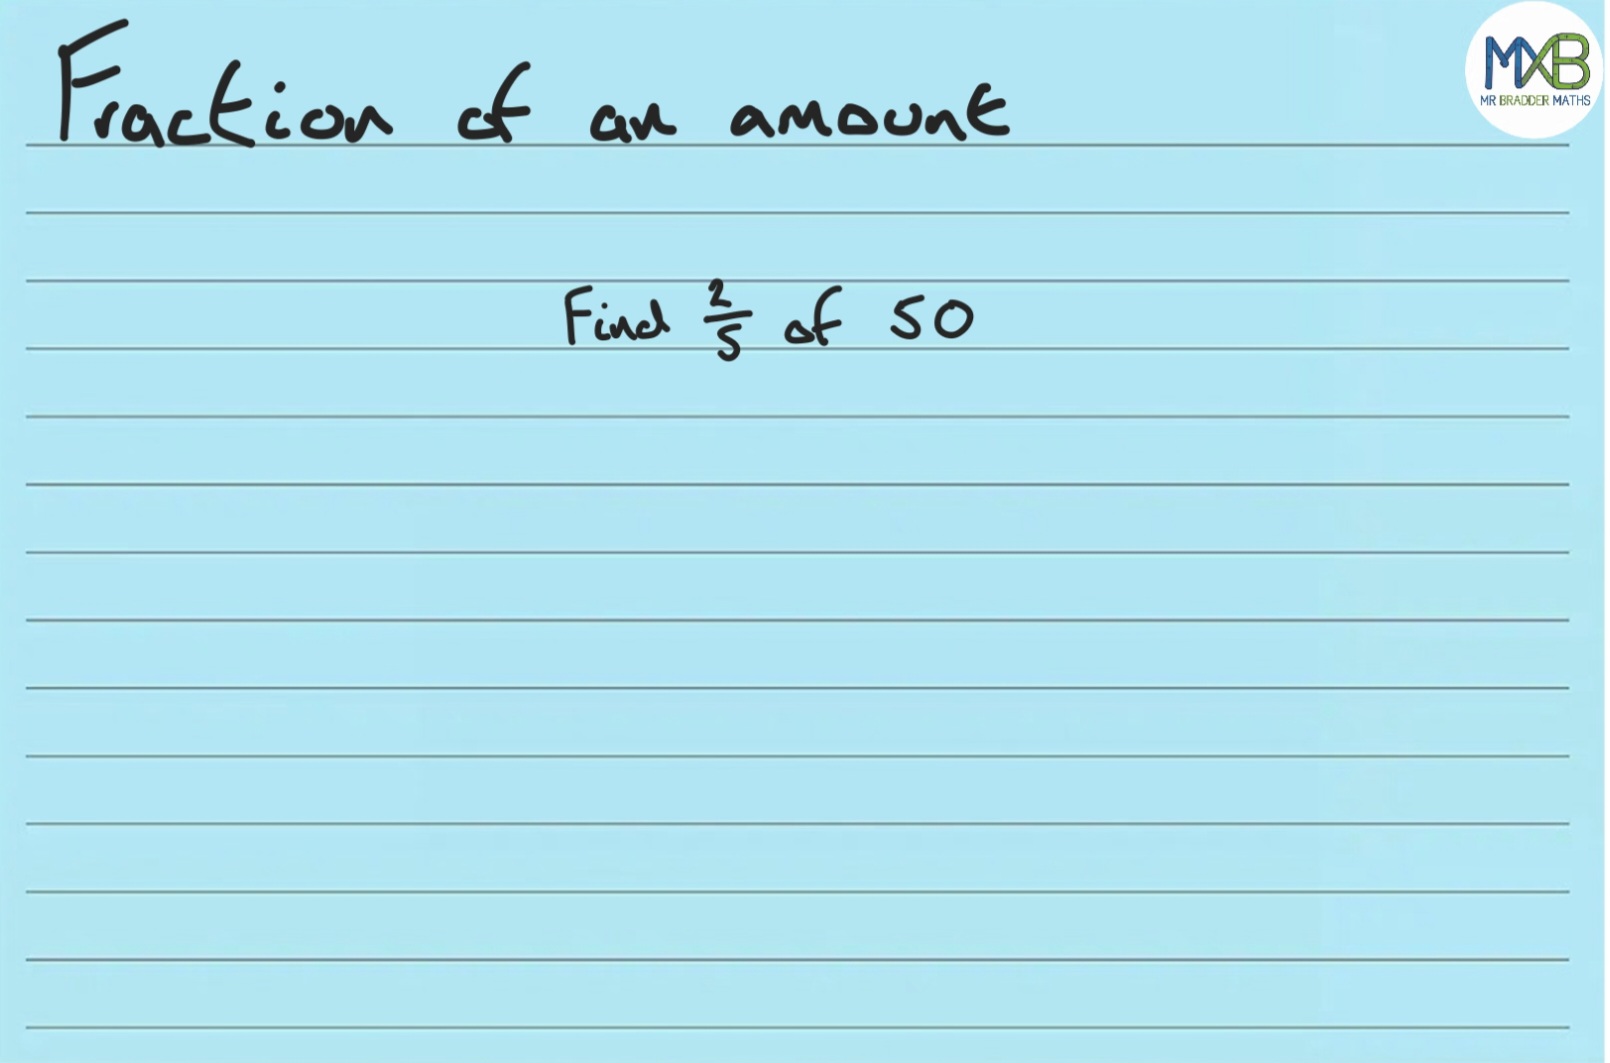 Fraction of an amount
MXB
MR BRADDER MATHS
Find 2/5 of 50